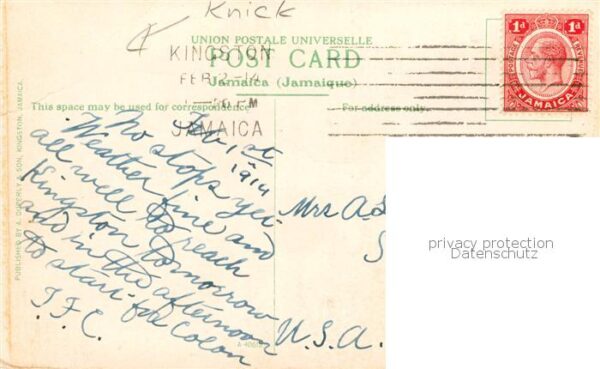 Knick
UNION POSTALE UNIVERSELLE
POST CARD
Jamaica (Jamaique)
KINGSTON
FEB 2-14
PM
JAMAICA
1d 1d
POSTAGE & REVENUE
JAMAICA
This space may be used for correspondence
For address only.
Feb 1st
1914
No stops yet.
Weather fine and
all well. To reach
Kingston tomorrow
and in the afternoon
to start for Colon
Mrs A.
U.S.A.
PUBLISHED BY A. DUPERLY & SON, KINGSTON, JAMAICA.
privacy protection
Datenschutz